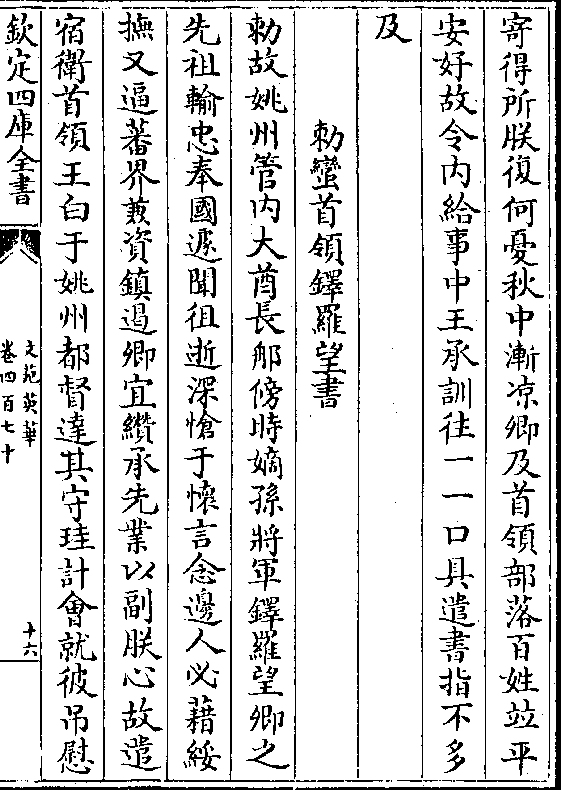 寄得所朕復何憂秋中漸凉卿及首領部落百姓竝平
安好故令内給事中王承訓往一一口具遣書指不多
及
勅蠻首領鐸羅望書
勅故姚州管内大酋長郍傍時嫡孫將軍鐸羅望卿之
先祖輸忠奉國遽聞徂逝深愴于懷言念邊人必藉綏
撫又逼蕃界兼資鎮遏卿宜纘承先業以副朕心故遣
宿衛首領王白于姚州都督達其守珪計會就彼弔慰
欽定四庫全書
文苑英華
卷四百七十
十六